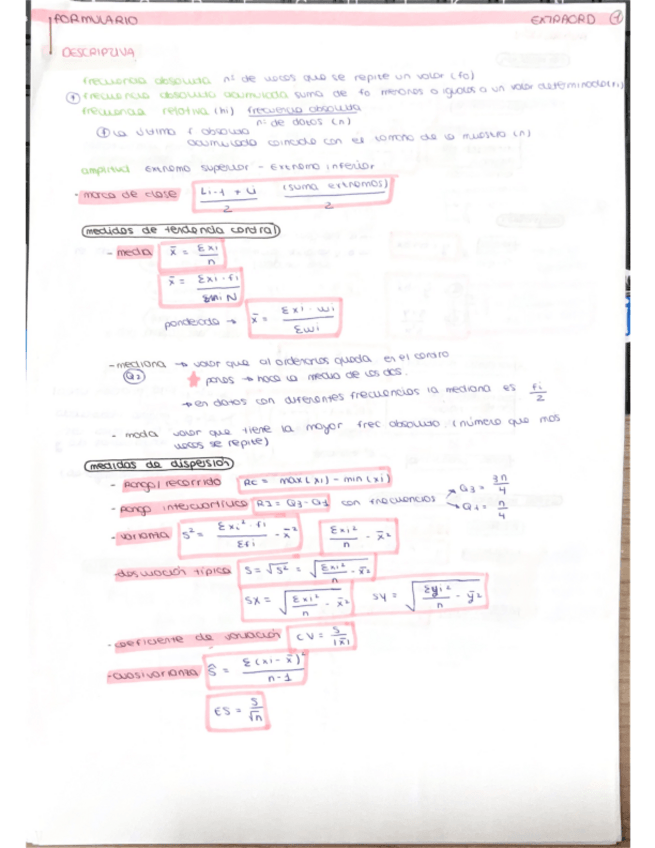 FORMULARIO EXTRAORD 1
DESCRIPTIVA
frecuencia absoluta nº de veces que se repite un valor (fo)
frecuencia absoluta acumulada suma de fo menores o iguales a un valor determinado(Fi)
frecuencia relativa (hi) frecuencia absoluta
nº de datos (n)
la última f absoluta
acumulada coincide con el tamaño de la muestra (n)
amplitud Extremo superior - Extremo inferior
- marca de clase Li-1 + Li / 2 (suma extremos) / 2
medidas de tendencia central
- media x̄ = Σxi / n
x̄ = Σxi · fi / N
ponderada → x̄ = Σxi · wi / Σwi
- mediana → valor que al ordenarlos queda en el centro
Q2 ★ pares → hace la media de los dos.
→ en datos con diferentes frecuencias la mediana es fi / 2
- moda valor que tiene la mayor frec absoluta. (número que más
veces se repite)
medidas de dispersión
- Rango/recorrido Re = max(xi) - min(xi)
- rango intercuartílico RI = Q3 - Q1 con frecuencias Q3 = 3n / 4
Q1 = n / 4
- varianza S² = Σxi² · fi / Σfi - x̄² Σxi² / n - x̄²
- desviación típica S = √S² = √Σxi² / n - x̄²
Sx = √Σxi² / n - x̄² Sy = √Σyi² / n - ȳ²
- coeficiente de variación CV = S / |x̄|
- cuasivarianza Ŝ = Σ(xi - x̄)² / n-1
ES = S / √n